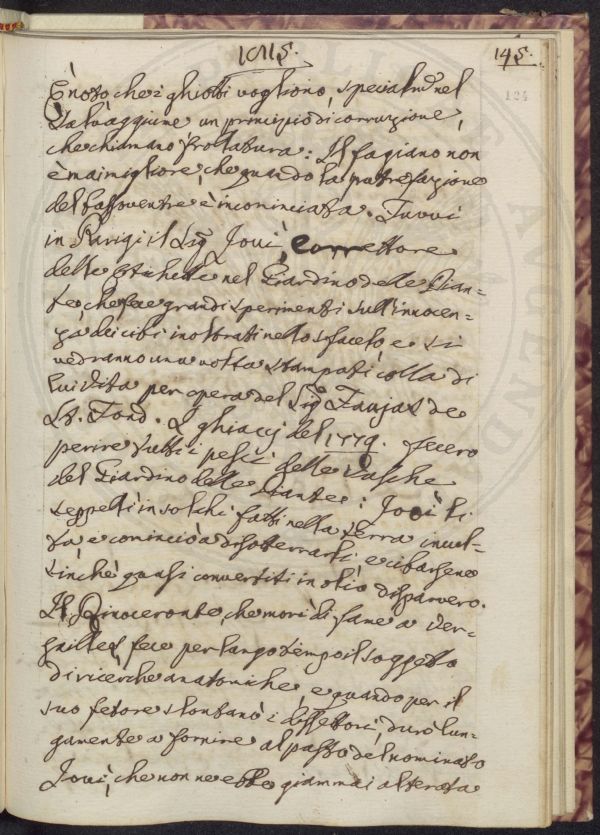 1015.
145.
124
È noto che i ghiotti vogliono, specialmte nel
Salvaggiume un principio di corruzione,
che chiamano Frollatura: Il fagiano non
è mai migliore, che quando la putrefazione
del basso ventre è incominciata. Fuvvi
in Parigi il Sig. Joui, Correttore
delle Etichette nel Giardino delle Pian=
te, che fece grandi sperimenti sull'innocen=
za dei cibi inoltrati nello sfacelo, e si
vedranno una volta stampati colla di
lui Vita per opera del Sig. Faujas de
St. Fond. I ghiacj del 1779. fecero
perire tutti i pesci delle Vasche
del Giardino delle Piante: Joui li
seppellì in solchi fatti nella terra
e cominciò a disotterrarli, e cibarsene
sinchè quasi convertiti in olio disparvero.
Il Rinoceronte, che morì di fame a Ver=
sailles fece per lungo tempo il soggetto
di ricerche anatomiche, e quando per il
suo fetore s'lontanò i dissettori, durò lun=
gamente a fornire al pasto del nominato
Joui, che non ne ebbe giammai alterata